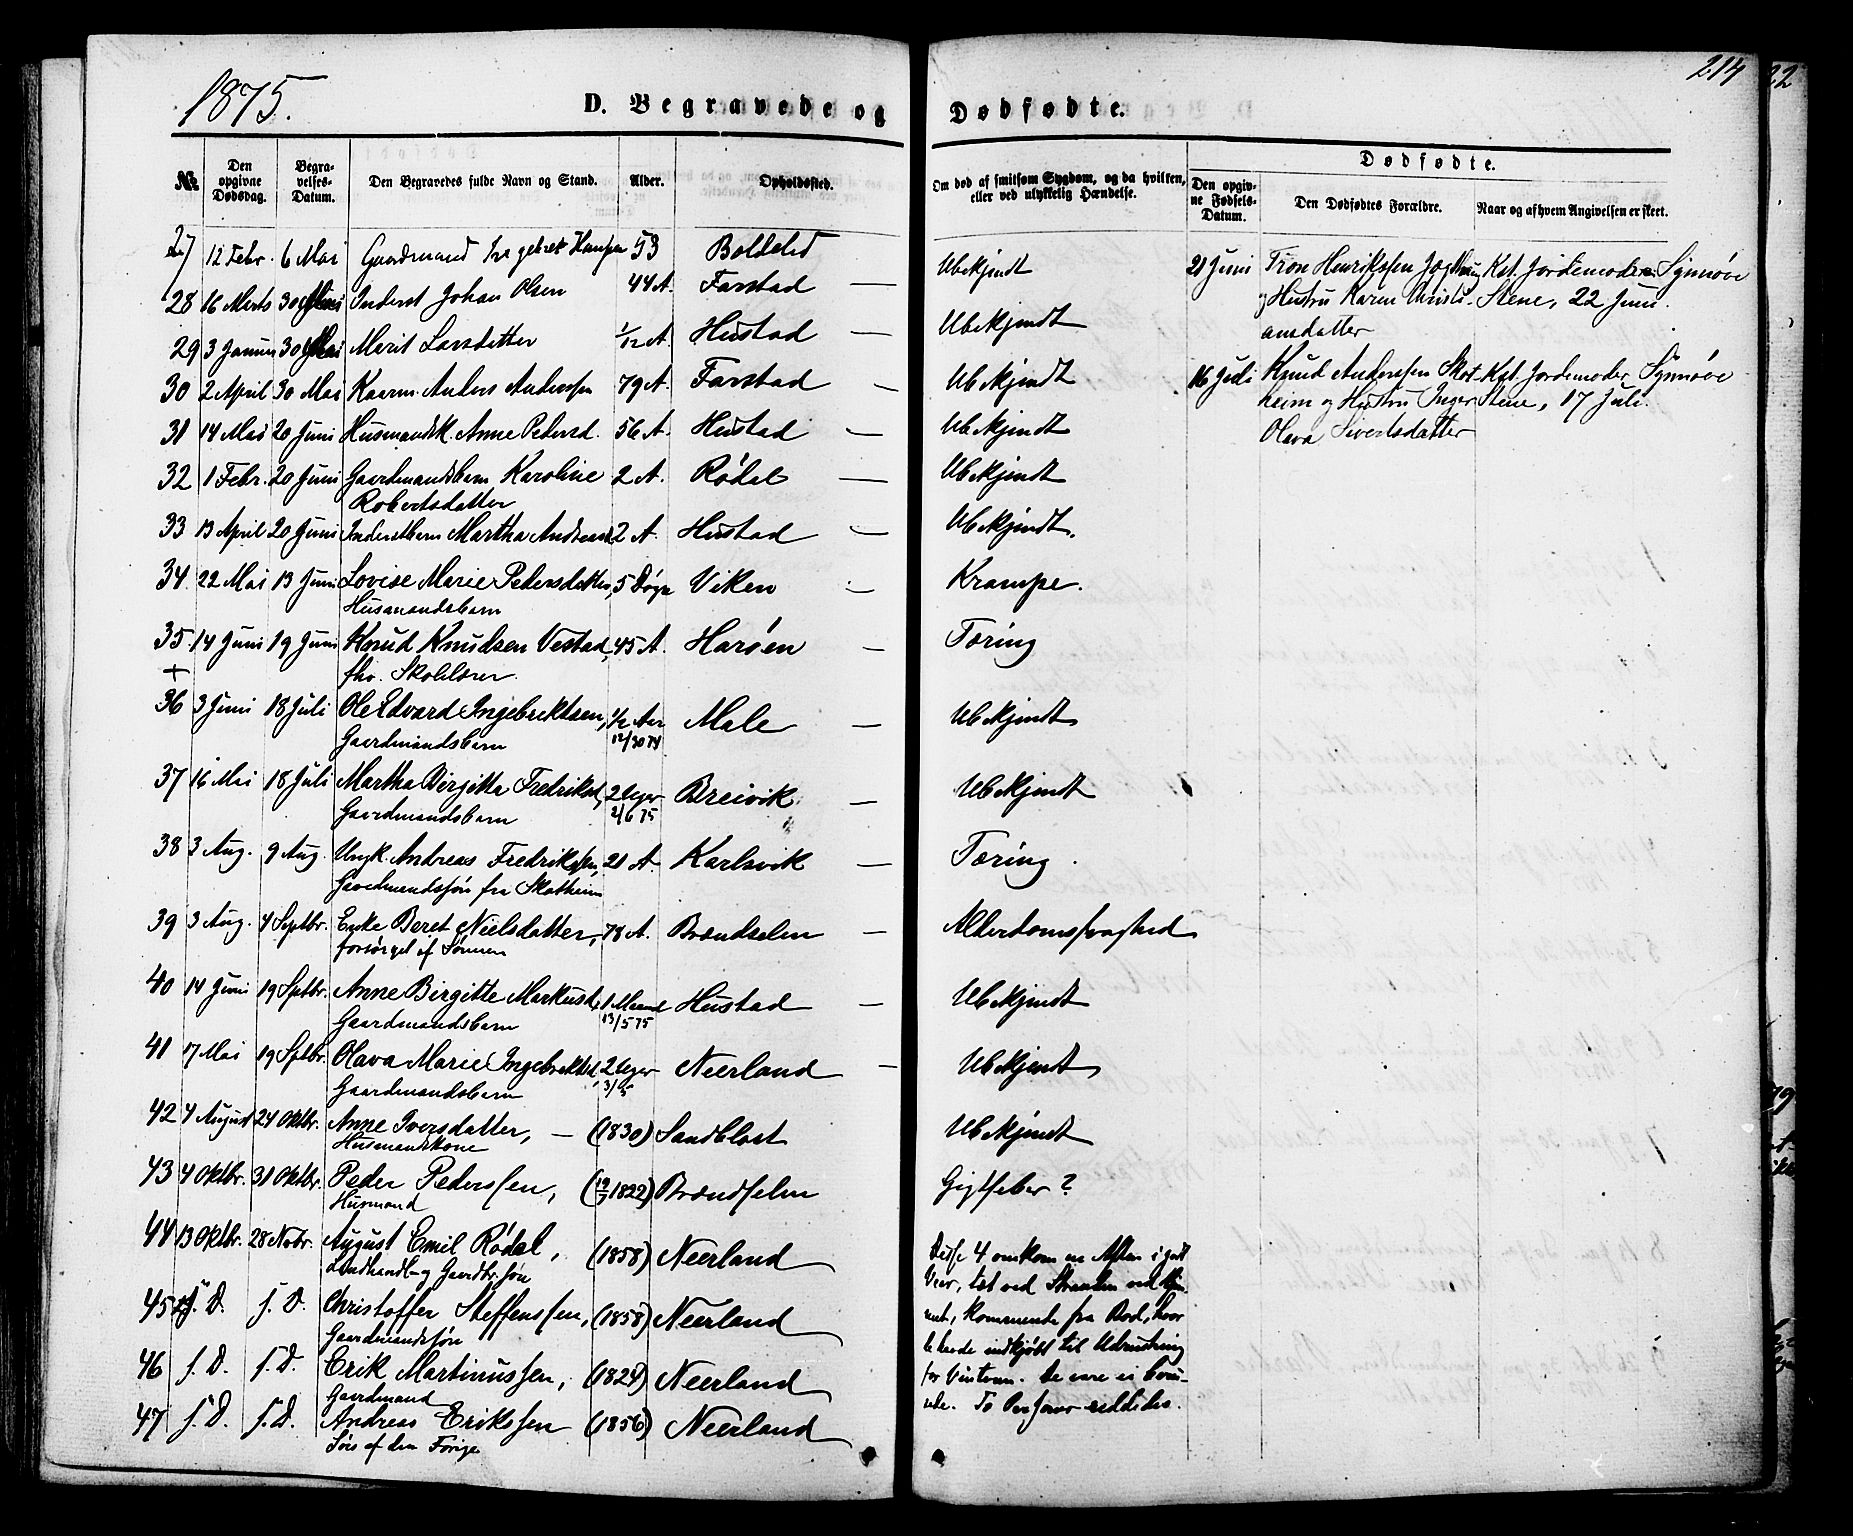 1875.
D. Begravede og Dødfødte.
214
№
Den opgivne Dødsdag.
Begravelses-Datum.
Den Begravedes fulde Navn og Stand.
Alder.
Opholdssted.
Om død af smitsom Sygdom, og da hvilken, eller ved ulykkelig Hændelse.
Dødfødte.
Den opgivne Fødsels-Datum.
Den Dødfødtes Forældre.
Naar og af hvem Angivelsen er skeet.
27 12 Febr. 6 Mai Gaardmand 53 Ubekjendt
28 16 Marts 30 Mai Inderst Johan Olsen 44 A. Farstad — Ubekjendt
29 3 Januar 30 Mai Marit Larsdatter 1/12 A. Hustad —
30 2 April 30 Mai Kaarm. Anders Anderssen 79 A. Farstad — Ubekjendt
31 14 Mai 20 Juni Husmandsk. Anne Pedersd. 56 A. Hustad — Ubekjendt
32 1 Febr. 20 Juni Gaardmandsbarn Karoline 2 A. Rødal — Ubekjendt
Robertsdatter
33 13 April 20 Juni Inderstbarn Martha Andreasd. 2 A. Hustad — Ubekjendt.
34. 22 Mai 13 Juni Lovise Marie Pedersdatter, 5 Døgn Viken — Krampe.
Husmandsbarn
35 14 Juni 19 Juni Knud Knudsen Vestad, 45 A. Harøen — Tæring
+ fhv. Skolelærer.
36 3 Juni 18 Juli Ole Edvard Ingebrektsen, 1/2 Aar Male — Ubekjendt
Gaardmandsbarn 12/30 74
37 16 Mai 18 Juli Martha Birgitta Fredriksd., 2 Uger Breivik — Ubekjendt
Gaardmandsbarn 2/6 75
38 3 Aug. 9 Aug. Ungk. Andreas Fredrikssen, 21 A. Karlsvik — Tæring.
Gaardmandssøn fra Skotheim
39 3 Aug. 4 Septbr. Enke Beret Nielsdatter, 78 A. Brandselen — Alderdomssvaghed
forsørget af Sønnen
40 14 Juni 19 Sptbr. Anne Birgitte Markusd., 1 Maaned Hustad — Ubekjendt
Gaardmandsbarn 13/5 75
41 17 Mai 19 Sptbr. Olava Marie Ingebrektsd., 2 Uger Neerland — Ubekjendt
Gaardmandsbarn 3/5
42 4 August 24 Oktbr. Anne Iversdatter, — (1830) Sandblost Ubekjendt
Husmandskone
43 4 Oktbr. 31 Oktbr. Peder Pederssen, (1822) Brandselen Gigtfeber?
Husmand
44 13 Oktbr. 28 Novbr. August Emil Rødal, (1858) Neerland
Landhandl. og Gaardbr. søn
45 s. D. s. D. Christoffer Steffenssen, (1858) Neerland
Gaardmandssøn
46 s. D. s. D. Erik Martinussen, (1824) Neerland
Gaardmand
47 s. D. s. D. Andreas Erikssen (1856) Neerland
Søn af den Forige
Disse 4 omkom en Aften i godt
Veir, tæt ved Stranden ved
kommende fra Bod, hvor
de havde indkjøbt til Udrustning
for Vinteren. De vare ei beru-
sede. To Personer reddedes.
21 Juni Tron Henrikssen Kst. Jordemoder Synnøve
og Hustru Karen Christi- Stene, 22 Juni.
ansdatter
Ubekjendt
16 Juli Knud Anderssen Skot- Kst. Jordemoder Synnøve
heim og Hustru Inger Stene, 17 Juli.
Olava Sivertsdatter